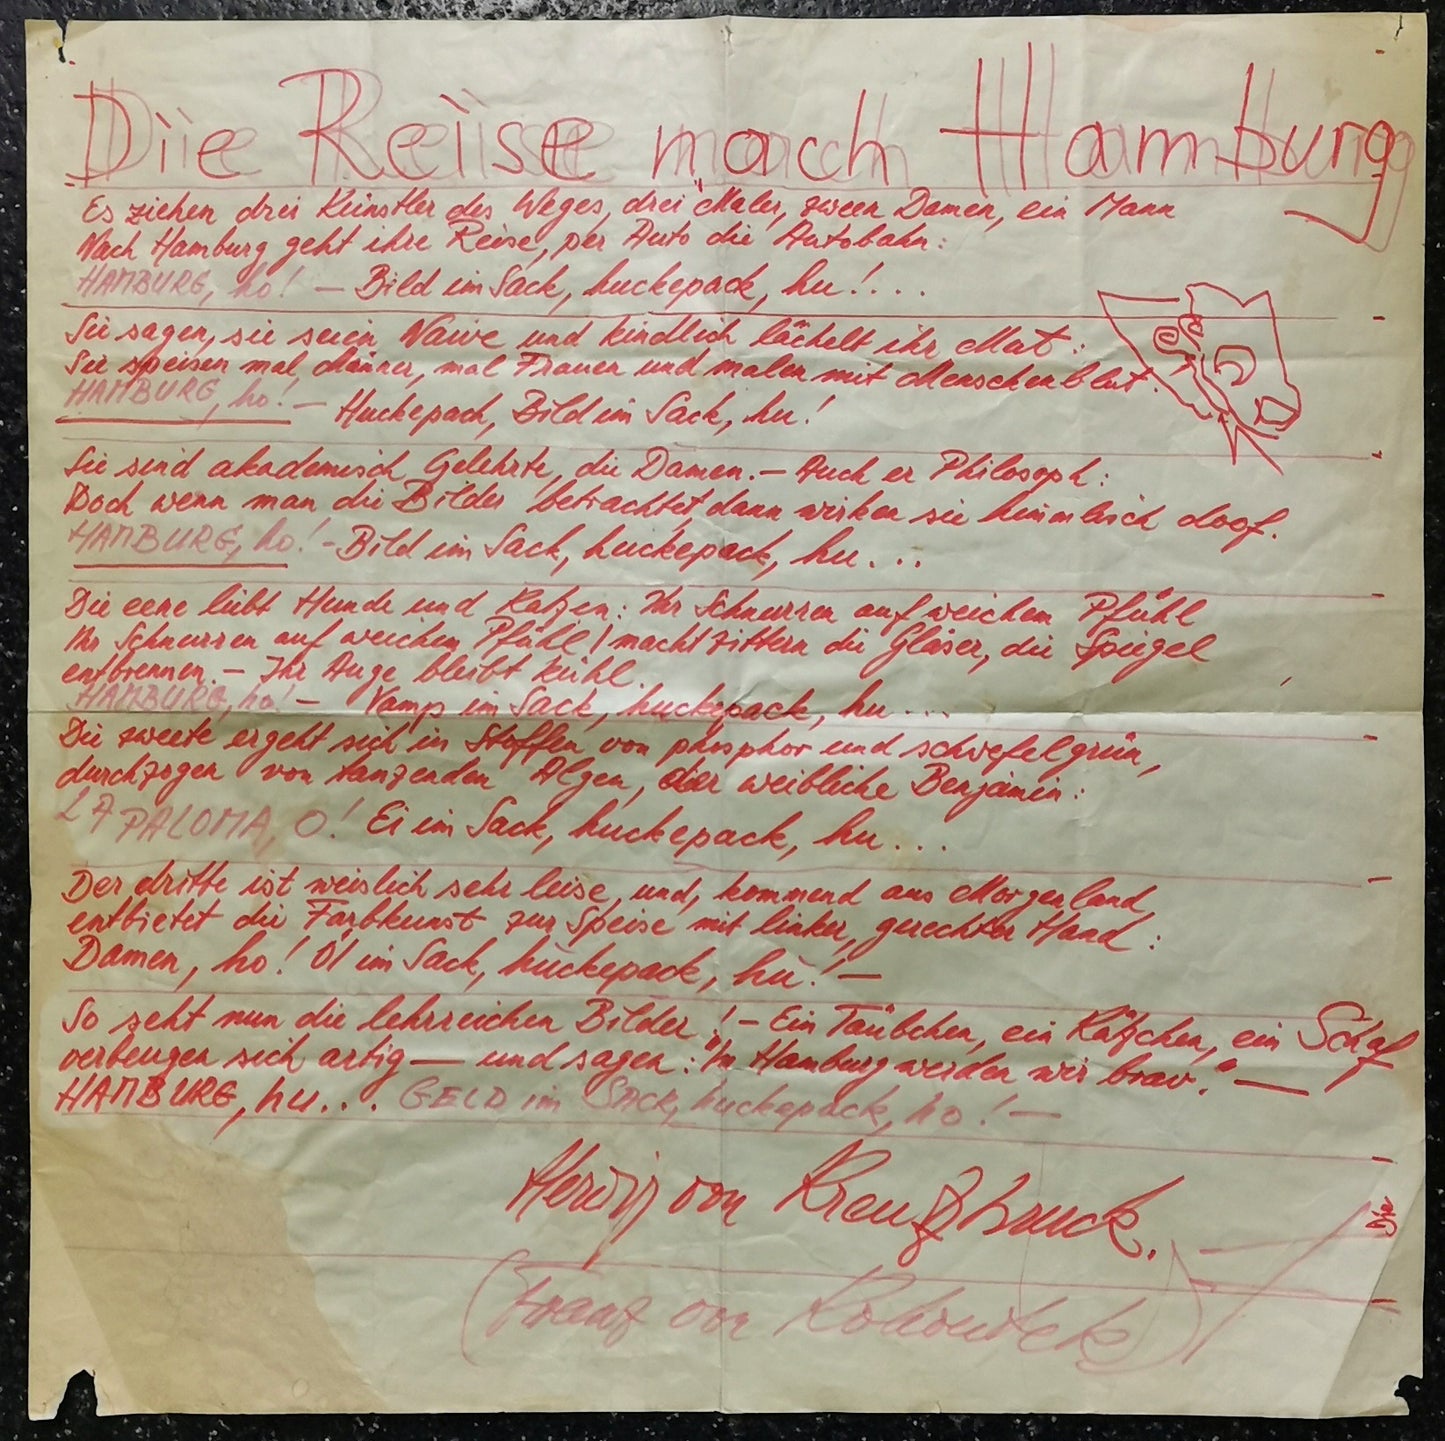 Die Reise nach Hamburg
Es ziehen drei Künstler des Weges, drei Maler, zween Damen, ein Mann
Nach Hamburg geht ihre Reise, per Auto die Autobahn:
HAMBURG, ho! – Bild im Sack, huckepack, hu!...
Sie sagen, sie seien Naive und kindlich lächelt ihr Mut:
Sie speisen mal Männer, mal Frauen und malen mit Menschenblut.
HAMBURG, ho! – Huckepack, Bild im Sack, hu!
Sie sind akademisch Gelehrte, die Damen. – Auch er Philosoph:
Doch wenn man die Bilder betrachtet, dann wirken sie himmlisch doof.
HAMBURG, ho! – Bild im Sack, huckepack, hu...
Die eene liebt Hunde und Katzen: Ihr Schnurren auf weichem Pfühl
Ihr Schnurren auf weichem Pfühl / macht zittern die Gläser, die Spiegel
entbrennen. – Ihr Auge bleibt kühl.
HAMBURG, ho! – Vamp im Sack, huckepack, hu...
Die zweete ergeht sich in Stoffen von phosphor und schwefelgrün,
durchzogen von tanzenden Algen, der weibliche Benjamin:
LA PALOMA, O! Ei im Sack, huckepack, hu...
Der dritte ist weislich sehr leise, und, kommend aus Morgenland,
entbietet die Farbkunst zur Speise mit linker, gerechter Hand:
Damen, ho! Öl im Sack, huckepack, hu! –
So seht nun die lehrreichen Bilder! – Ein Täubchen, ein Kätzchen, ein Schaf
verbeugen sich artig – und sagen: "In Hamburg werden wir brav." –
HAMBURG, hu... GELD im SACK, huckepack, ho! –
von Kreuzbruck.
(Franz von
Die